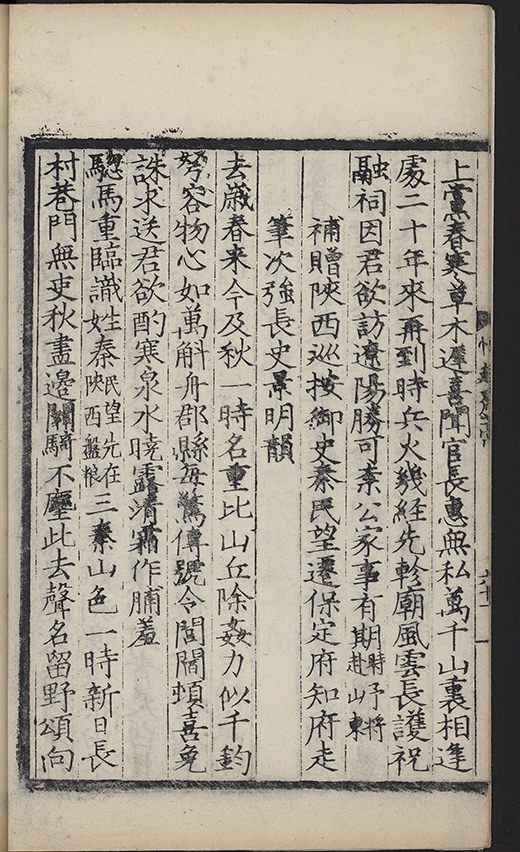 上黨春寒草木遲喜聞官長惠無私萬千山裏相逢
處二十年來再到時兵火幾經先軫廟風雲長護祝
融祠因君欲訪遼陽勝可柰公家事有期時予將赴山東
補贈陝西巡按御史秦民望遷保定府知府走
筆次強長史景明韻
去歲春来今及秋一時名重比山丘除姦力似千鈞
弩容物心如萬斛舟郡縣每驚傳號令閭閻頓喜免
誅求送君欲酌寒泉水曉露清霜作脯羞
驄馬重臨識姓秦民望先在陝西盤粮三秦山色一時新日長
村巷門無吏秋盡邊關騎不塵此去聲名留野頌向